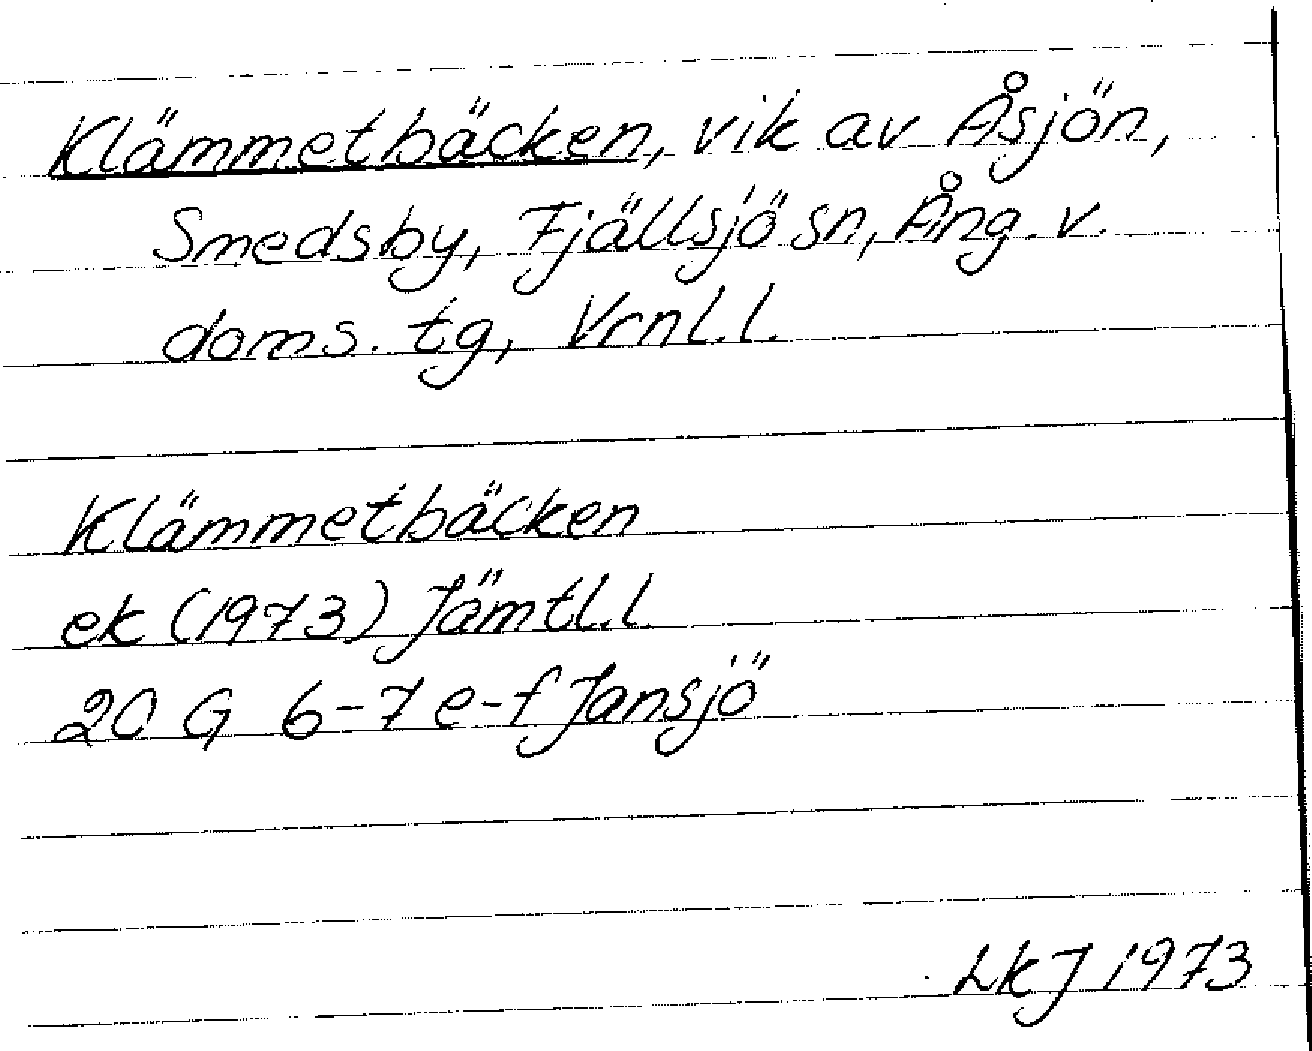 Klämmetbäcken, vik av Åsjön,
Smedsby, Fjällsjö sn, Ång. v.
doms. tg, Vrnl.l.
Klämmetbäcken
ek (1973) Jämtl.l
20 G 6-7 e-f Jansjö
LkJ 1973